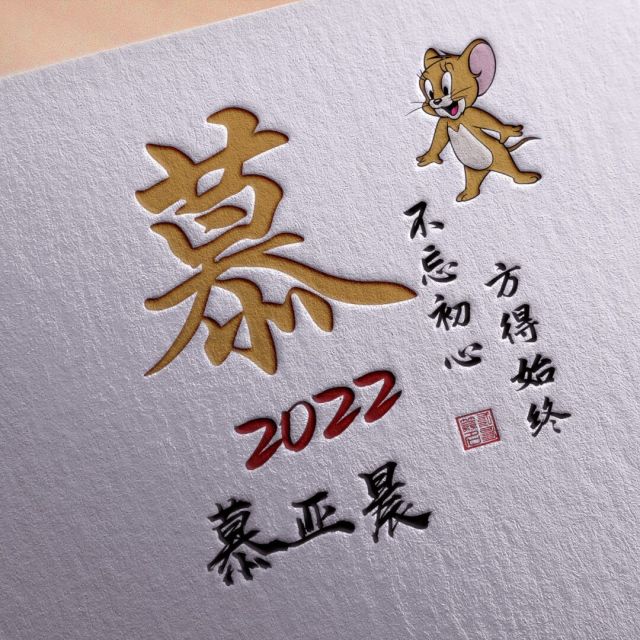 慕
不忘初心
方得始终
2022
慕正晨